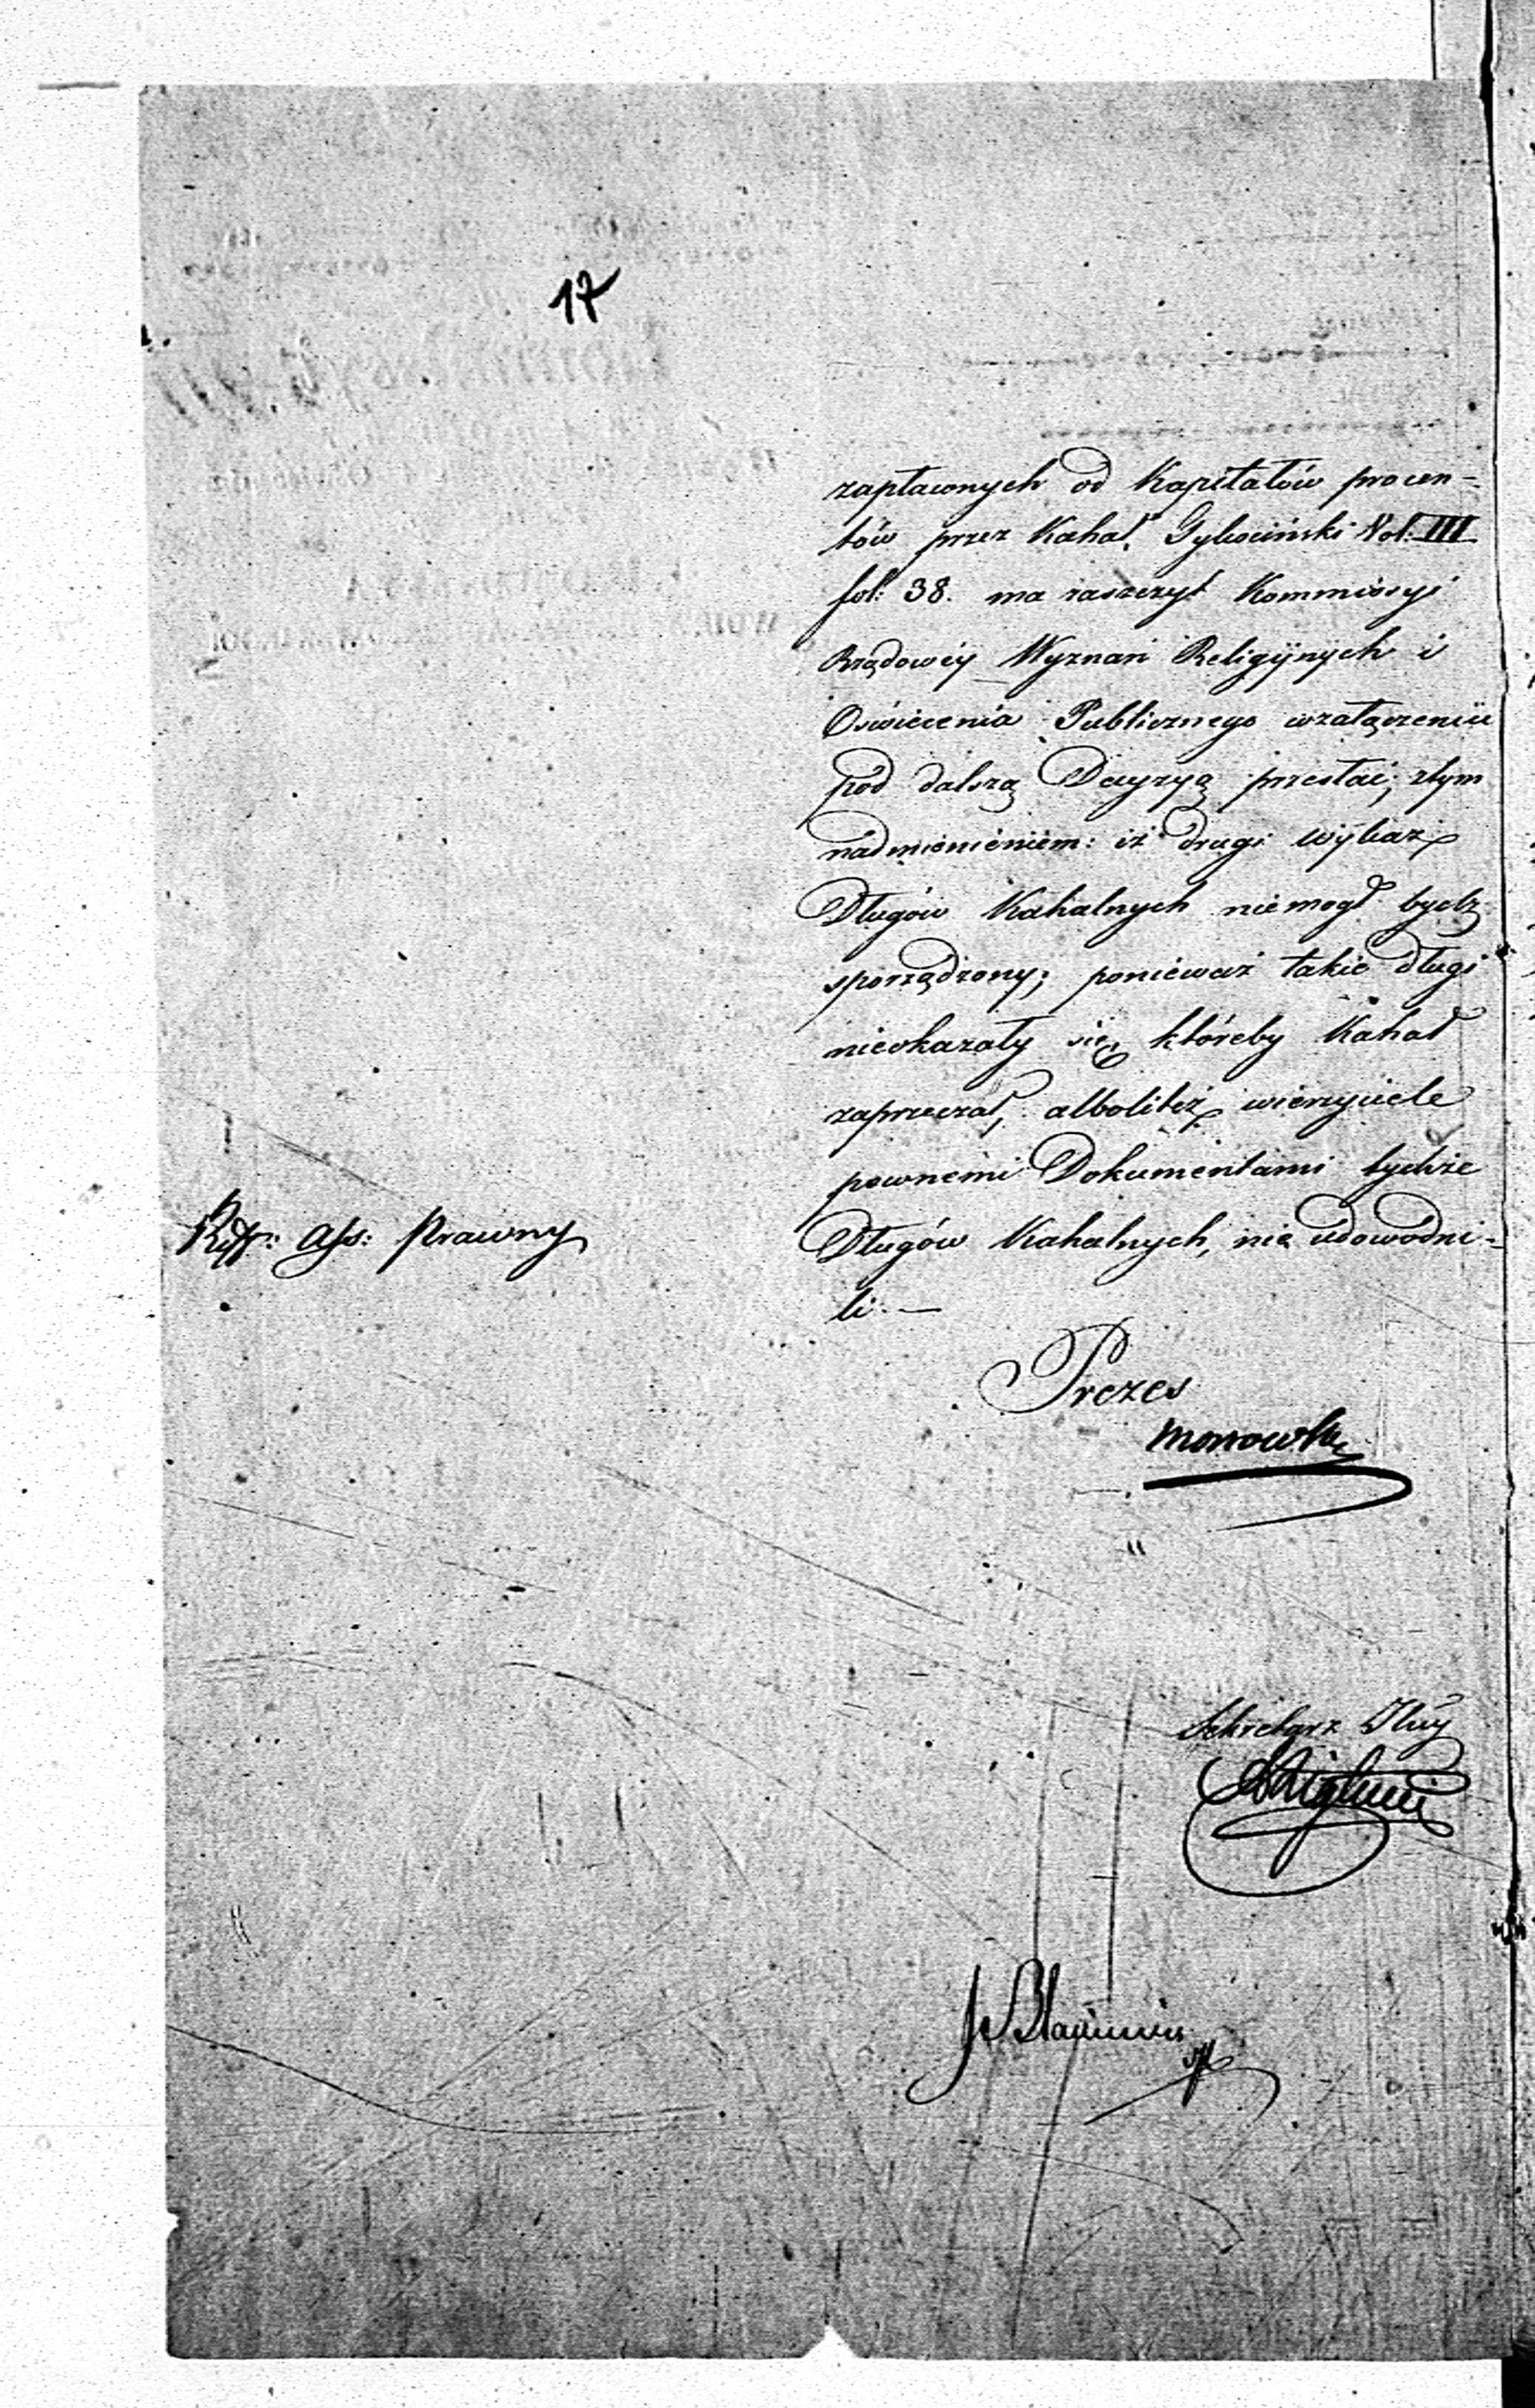 17
zapłaconych od Kapitałów procen-
tów przez Kahał Tykociński Vol: III
fol: 38. ma zaszczyt Kommissyi
Rządowéy Wyznań Religijnych i
Oświecenia Publicznego wzałączeniu
pod dalszą Decyzyą przesłać; ztym
nadmienieniem: iż drugi wykaz
Długów Kahalnych niemógł bydź
sporządzony; ponieważ takie długi
nieokazały się, któreby Kahał
zaprzeczał, albolitéż wierzyciele
pewnemi Dokumentami tychże
Długów Kahalnych, nie udowodni-
li.—
Reff: Ass: Prawny
Prezes
Sekretarz Jlny